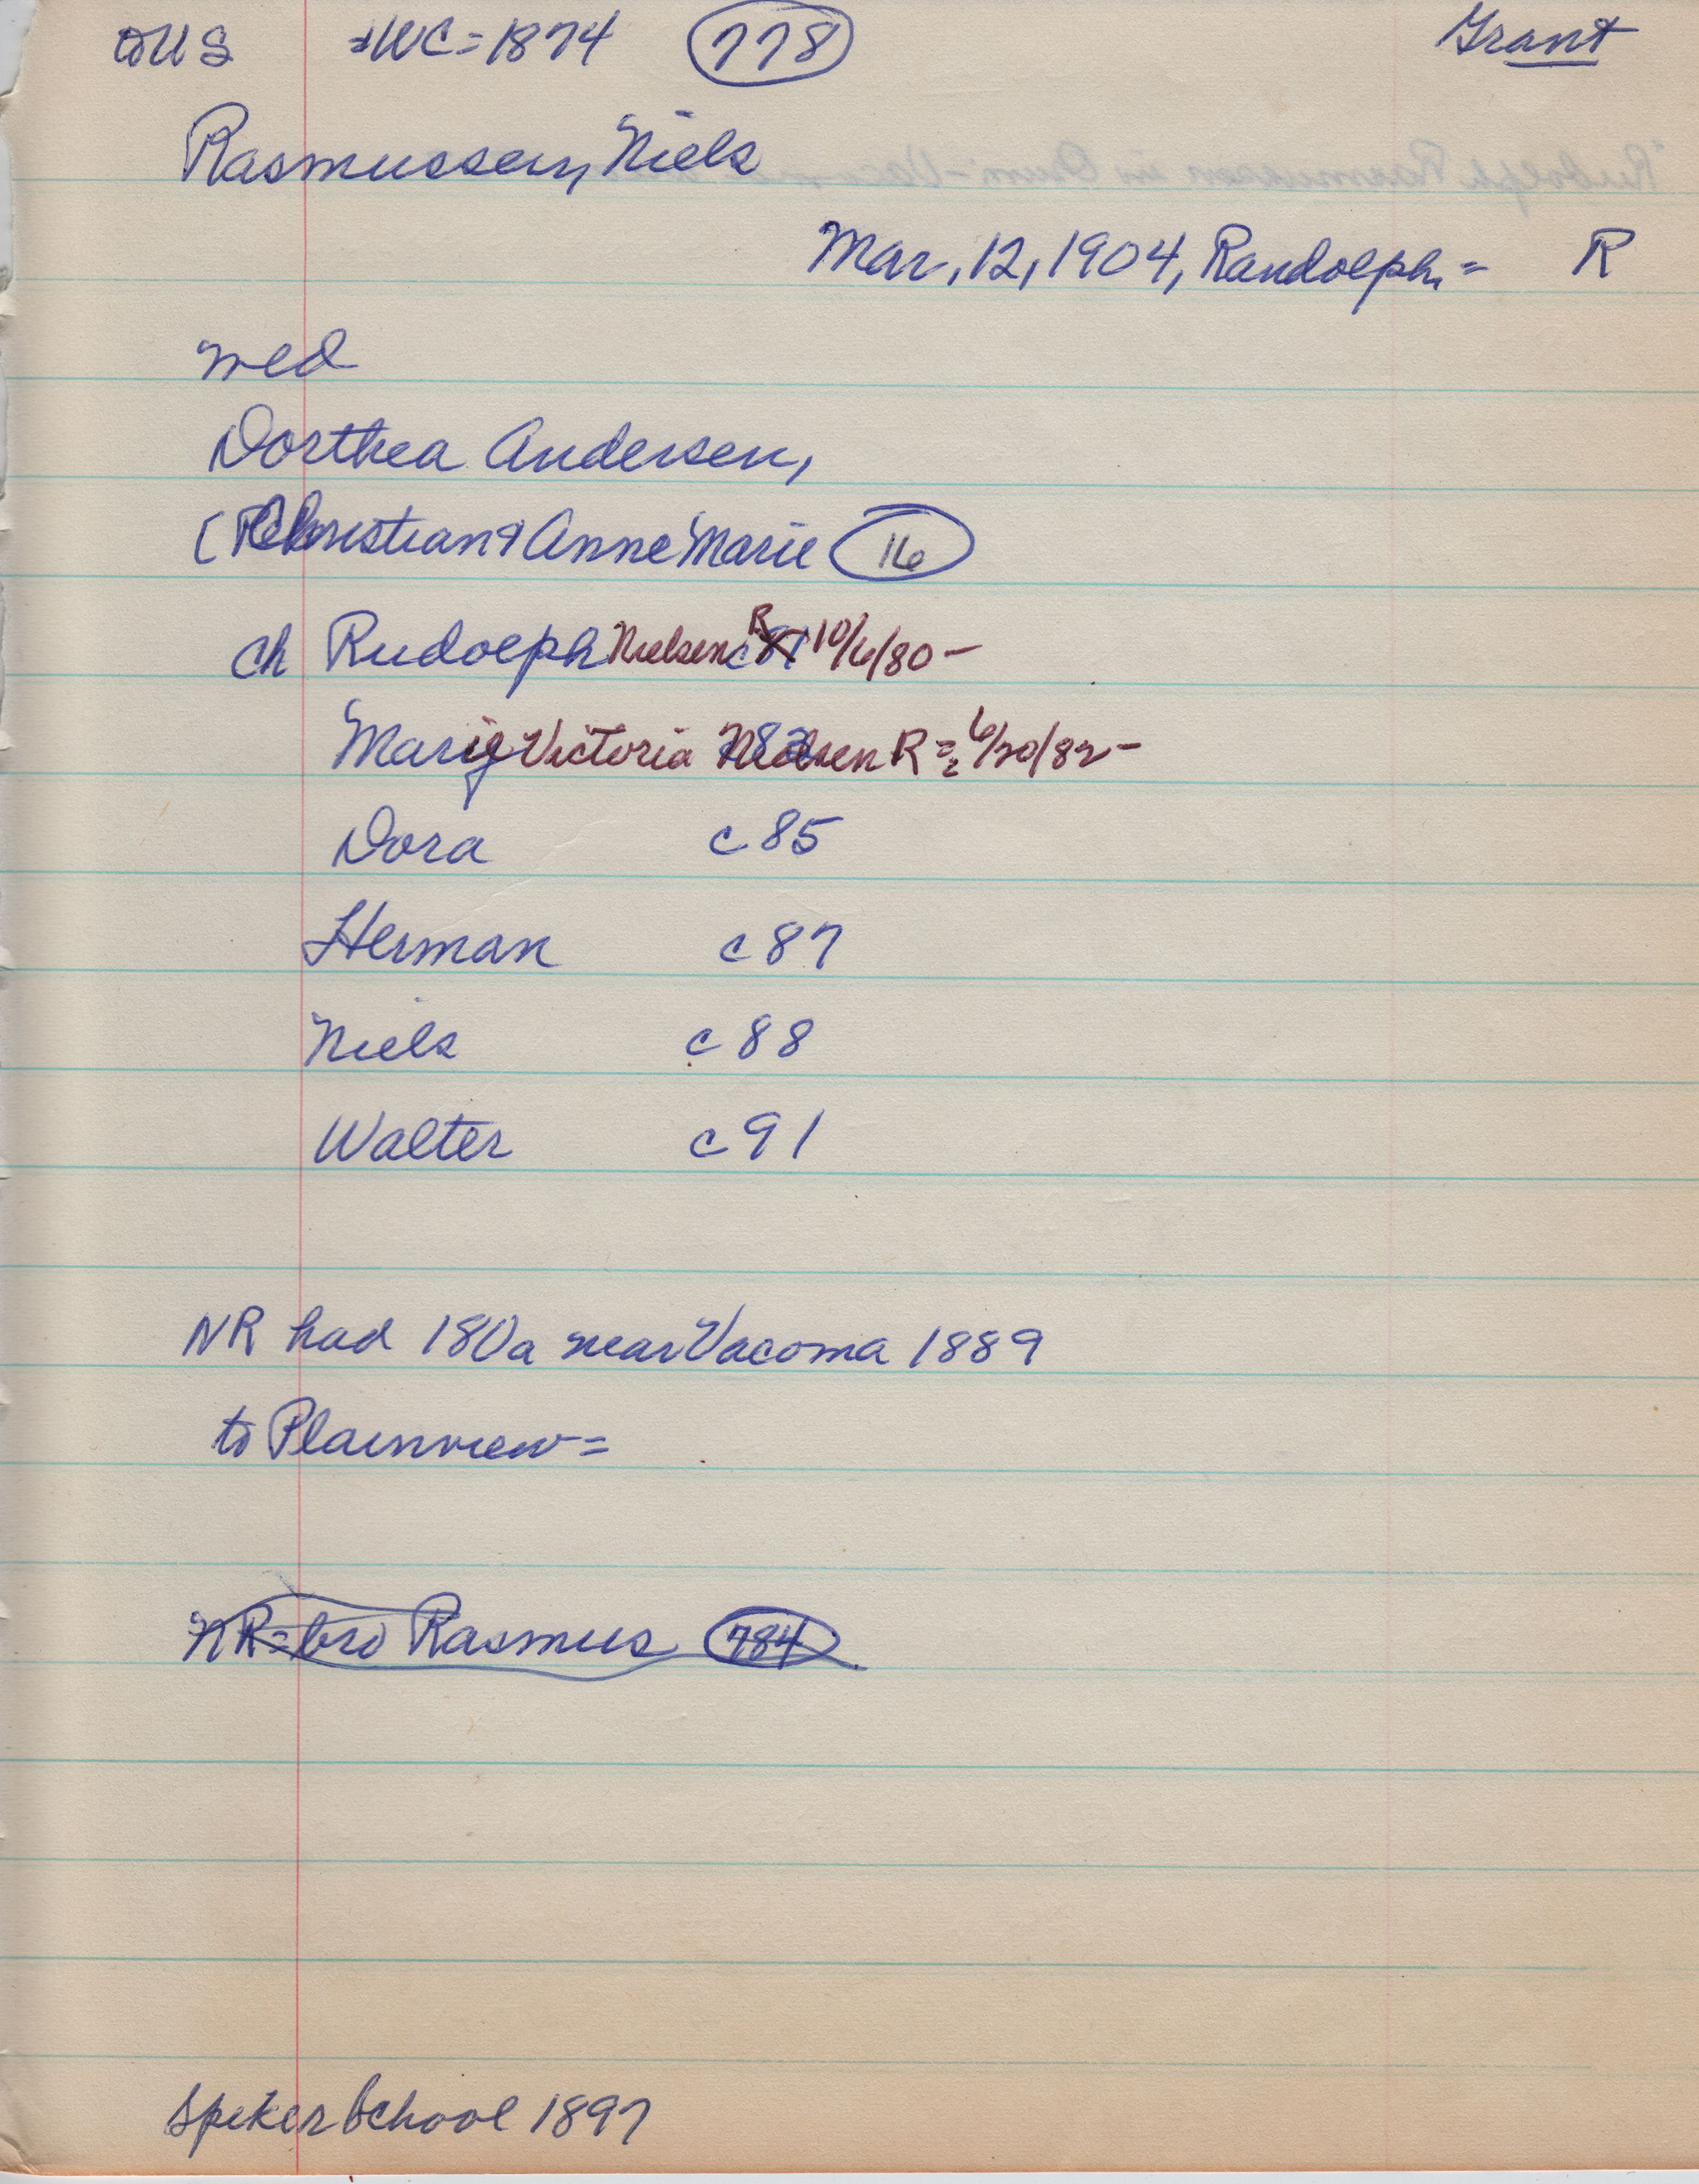 to US =WC=1874 778 Grant
Rasmussen, Niels
Mar, 12, 1904, Randolph = R
wed
Dorthea Andersen,
(Christian & Anne Marie 16
ch Rudolph Nielsen R 10/6/80 -
Marie Victoria Nielsen R = 6/20/82 -
Dora c 85
Herman c 87
Niels c 88
Walter c 91
NR had 180a near Vacoma 1889
to Plainview =
NR = bro Rasmus 784
Spiker School 1897